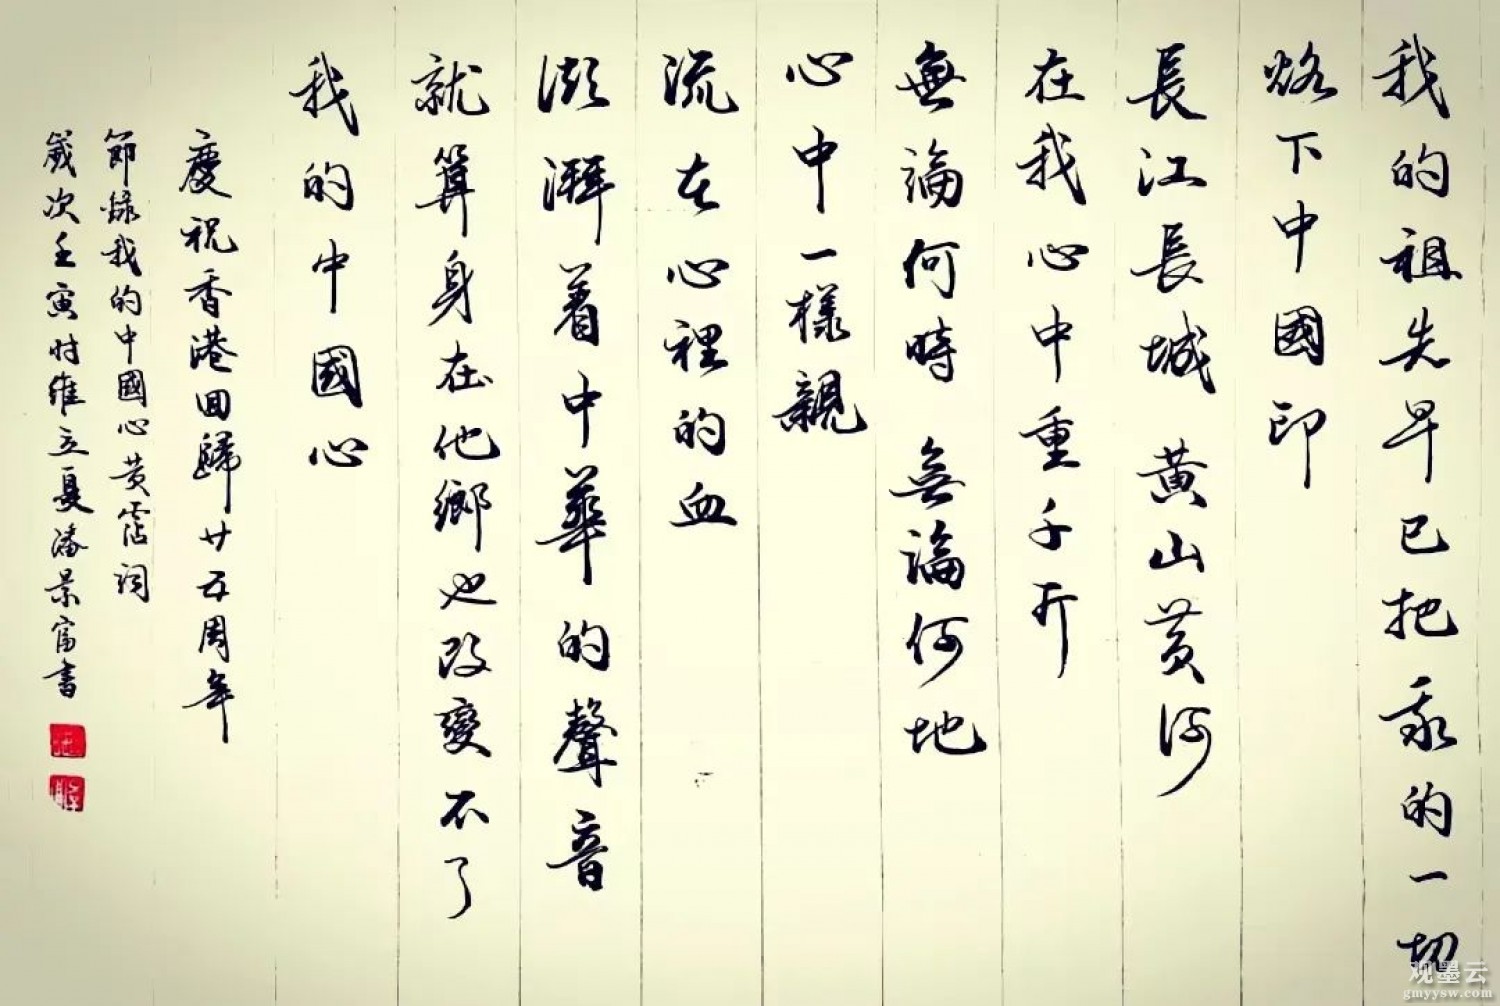 我的祖先早已把我的一切
烙下中國印
長江長城 黄山黄河
在我心中重千斤
無論何時 無論何地
心中一樣親
流在心裡的血
澎湃着中華的聲音
就算身在他鄉也改變不了
我的中國心
慶祝香港回歸廿五周年
節錄我的中國心黄霑詞
歲次壬寅时維立夏潘景富書
观墨云
gmyysw.com